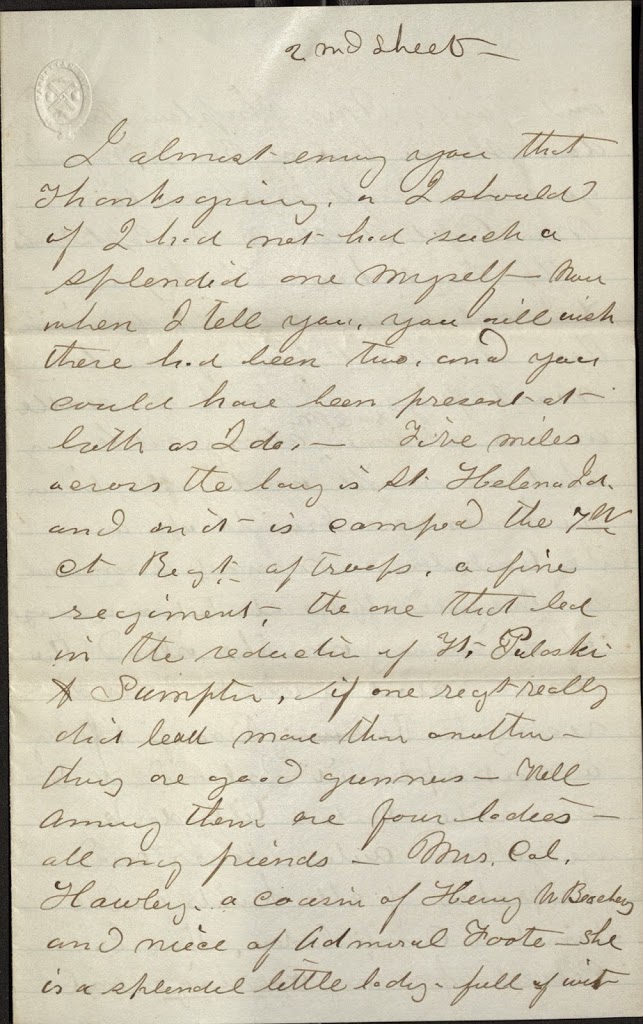 2nd sheet —
I almost envy you that
Thanksgiving, or I should
if I had not had such a
splendid one myself — Now
when I tell you, you will wish
there had been two, and you
could have been present at
both as I do, — Five miles
across the bay is St Helena Isd.
and on it is camped the 7th
Ct Regt. of troops, a fine
regiment, the one that led
in the reduction of Ft, Puloski
& Sumpter, if one regt really
did lead more than another —
they are good gunners — Well
among them are four ladies —
all my friends — Mrs. Col.
Hawley, a cousin of Henry W Beechers
and niece of Admiral Foote — she
is a splendid little lady — full of wit